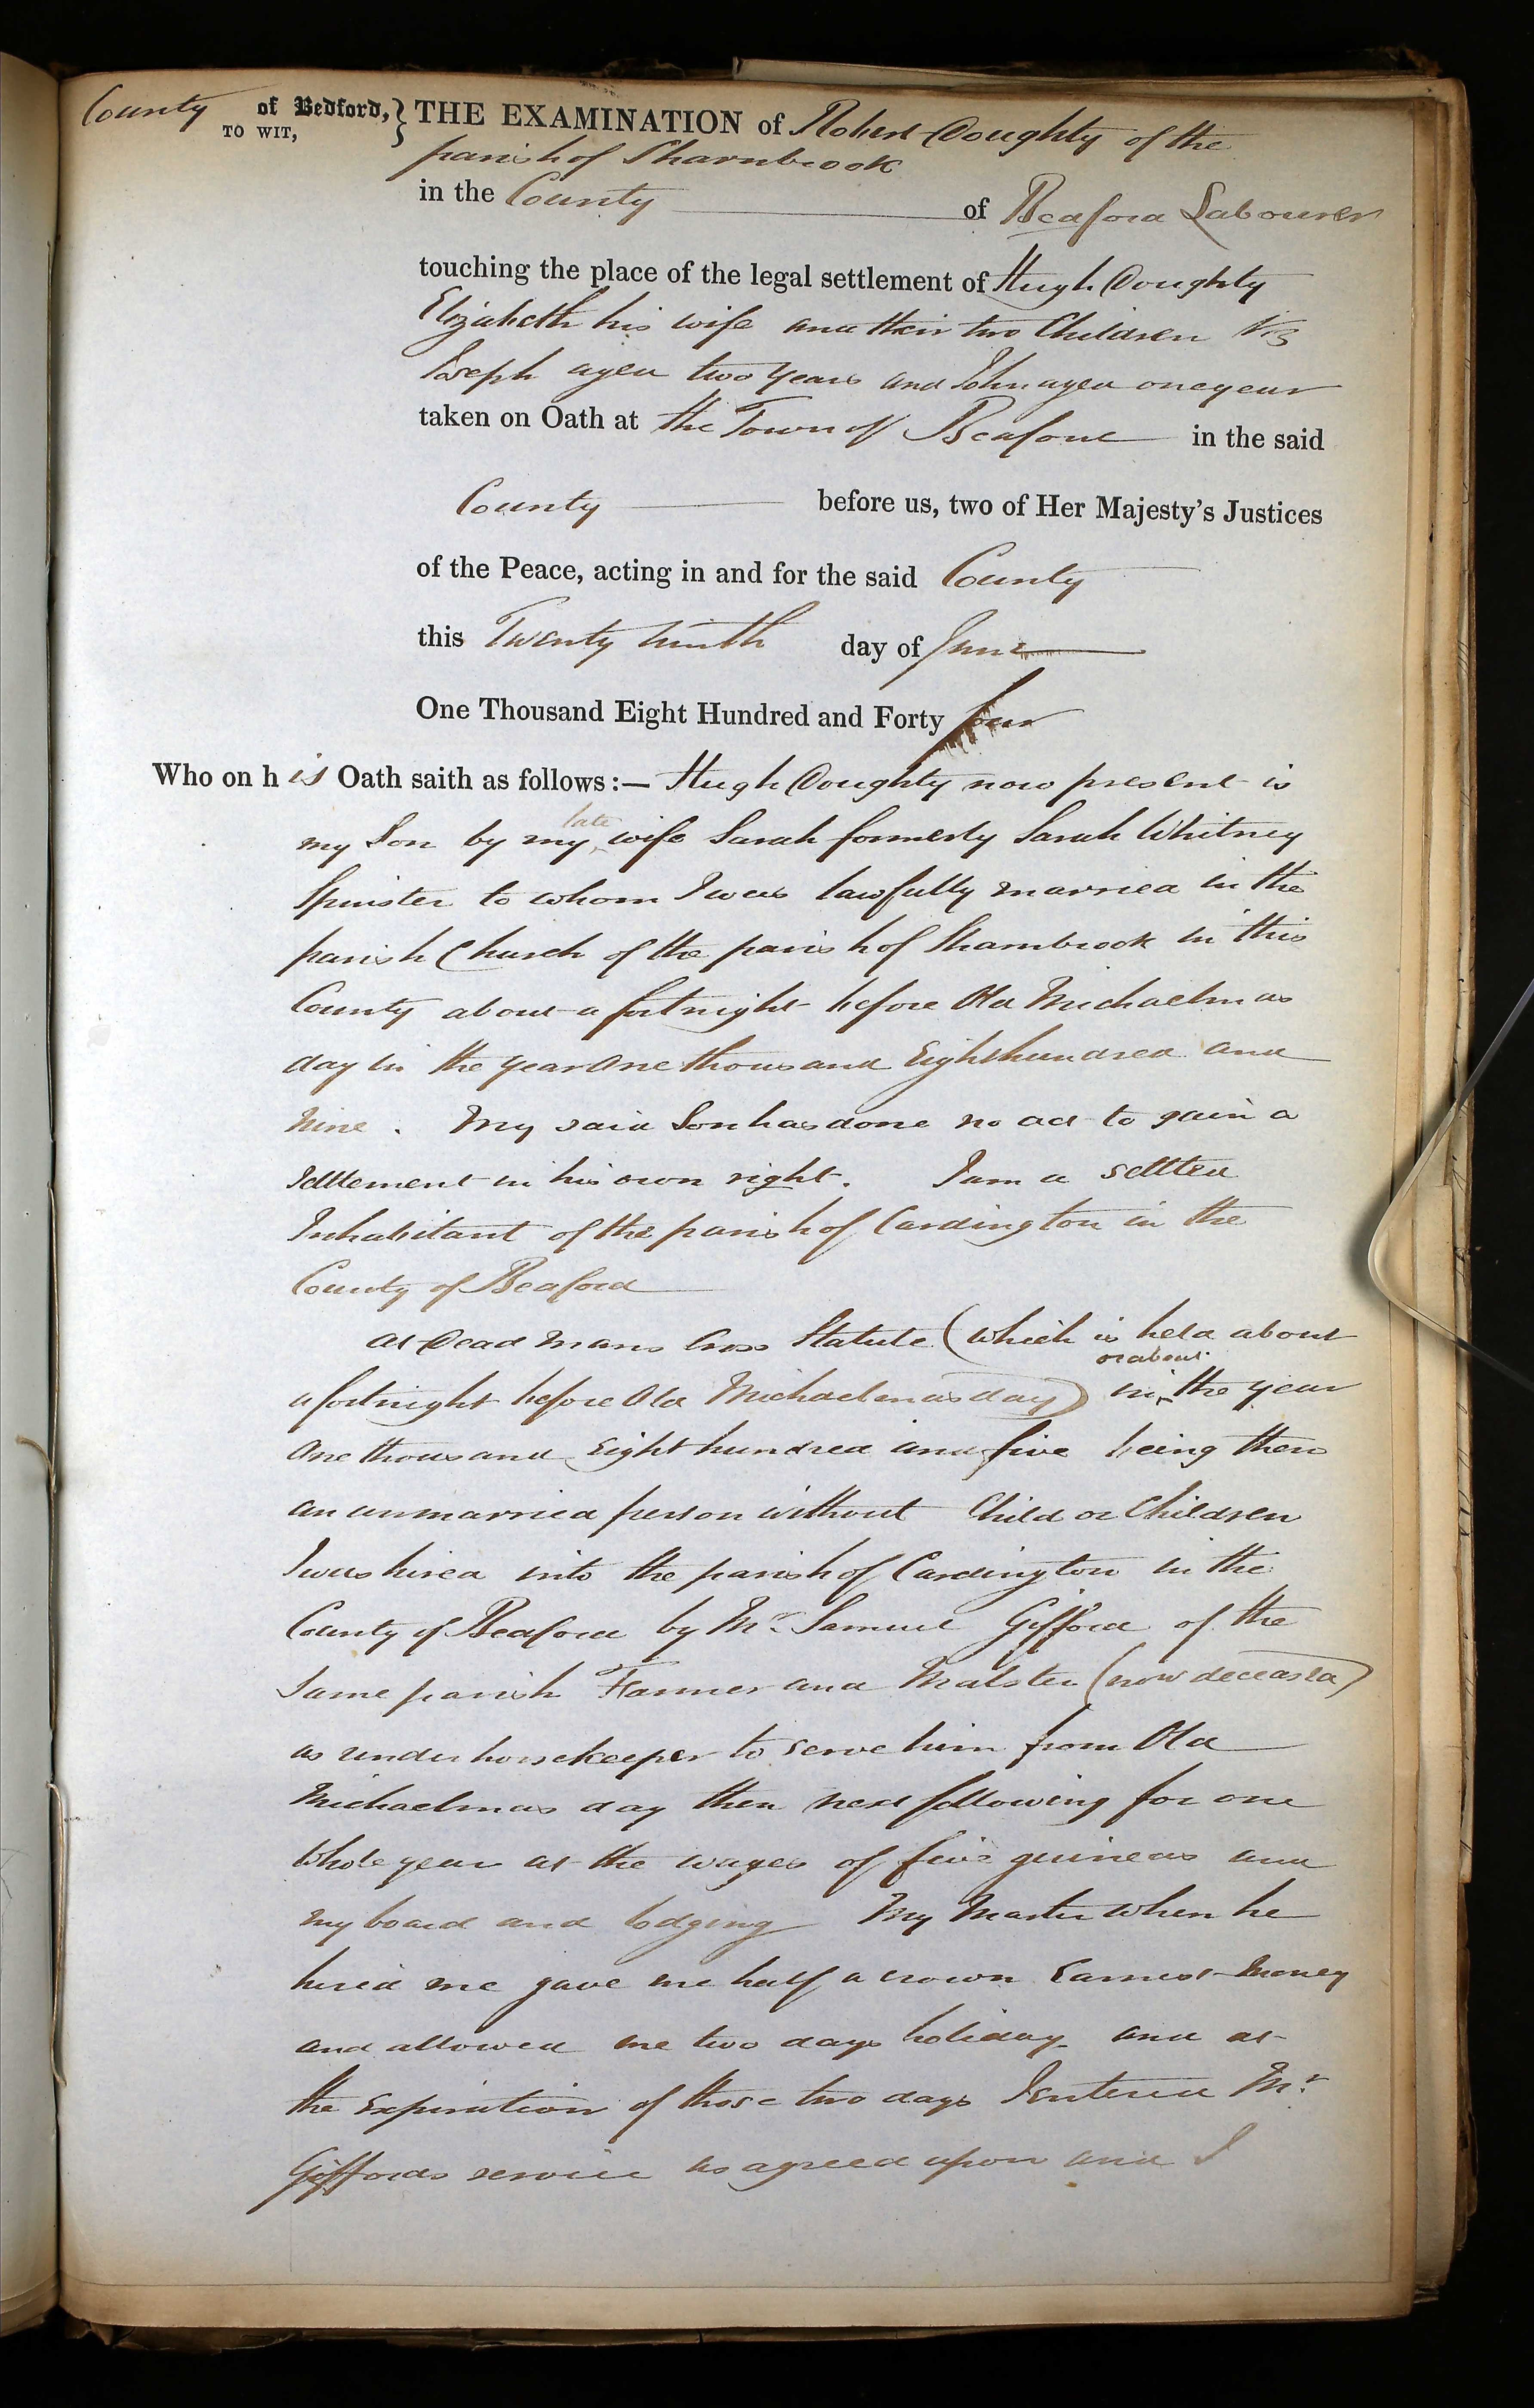 County of Bedford, } THE EXAMINATION of Robert Doughty of the
TO WIT,
parish of Sharnbrook
in the County of Bedford Labourer
touching the place of the legal settlement of Hugh Doughty
Elizabeth his wife and their two Children Viz
Joseph aged two Years and John aged one year
taken on Oath at the Town of Bedford in the said
County before us, two of Her Majesty's Justices
of the Peace, acting in and for the said County
this Twenty ninth day of June
One Thousand Eight Hundred and Forty four
Who on his Oath saith as follows:— Hugh Doughty now present is
my Son by my late wife Sarah formerly Sarah Whitney
Spinster to whom I was lawfully married in the
parish Church of the parish of Sharnbrook in this
County about a fortnight before Old Michaelmas
day in the year One thousand Eight hundred and
Nine. My said Son has done no act to gain a
Settlement in his own right. I am a settled
Inhabitant of the parish of Cardington in the
County of Bedford
At Dead Mans Cross Statute (which is held about
a fortnight before Old Michaelmas day) in or about the year
One thousand Eight hundred and five being then
an unmarried person without Child or Children
I was hired into the parish of Cardington in the
County of Bedford by Mr. Samuel Gifford of the
Same parish Farmer and Malster (now deceased)
as under horsekeeper to serve him from Old
Michaelmas day then next following for one
Whole year at the wages of five guineas and
my board and lodging My Master when he
hired me gave me half a crown Earnest Money
and allowed me two days holiday and at
the Expiration of those two days I entered Mr.
Giffords service as agreed upon and I